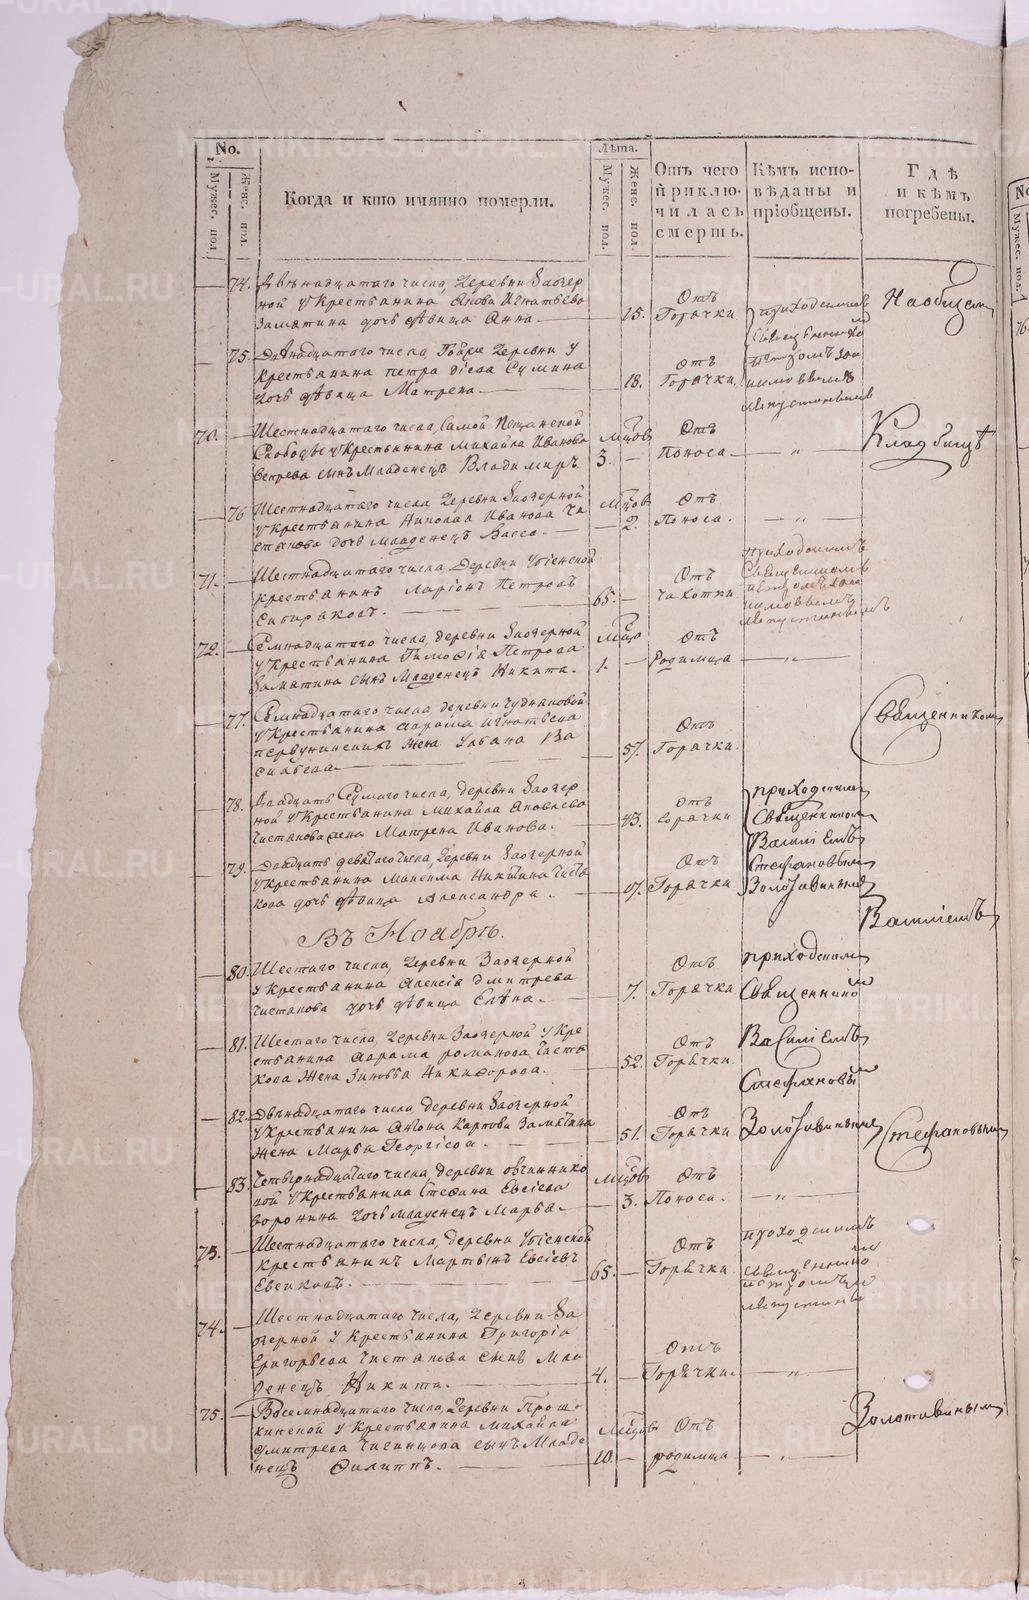 No.
Мужес. пол.
Женс. пол.
Когда и кто имянно померли.
Лѣта.
Мужес. пол.
Женс. пол.
Отъ чего
приклю-
чилась
смерть.
Кѣмъ испо-
вѣданы и
пріобщены.
Гдѣ
и кѣмъ
погребены.
74. Двѣнадцатаго числа, деревни Заозер
ной у Крестьянина Якова Игнатьева
Замятина дочь дѣвица Анна. 15. Отъ Горячки
75. числа, деревни у
Крестьянина петра Сумина
дочь дѣвица Матрена 18. Отъ Горячки,
приходскимъ
70. Шестнадцатаго числа, Самой Пещанской
Слободы у Крестьянина Михайла Иванова
сынъ Младенецъ Владимиръ Мцов 3. Отъ Поноса
76 Шестнадцатаго числа деревни Заозерной
у Крестьянина Николая Иванова Чи
стякова дочь младенецъ Васса. Мцов 2. Отъ Поноса.
71. Шестнадцатаго числа, Деревни
крестьянинъ Ларіонъ Петровъ
Сибиряковъ. 65. Отъ чахотки
приходскимъ
Священникомъ
72. Семнадцатаго числа, деревни Заозерной
у Крестьянина Тимофѣя Петрова
Замятина сынъ Младенецъ Никита. 1. Отъ Родимца
77. Семнадцатаго числа, деревни
у Крестьянина Игнатьева
жена Ульяна Ва
сильева 57. Отъ Горячки.
78. Двадцать Седмаго числа, деревни Заозер
ной у Крестьянина Михайла Яковлева
Чистякова жена Матрена Иванова. 43. Отъ Горячки
79. Двадцать девятаго числа, деревни Заозерной
у Крестьянина Максима Никитина Чистя
кова дочь дѣвица Александра. 17. Отъ Горячки
приходскимъ
Священникомъ
Василіемъ
Стефановымъ
Золотавинымъ
Въ Ноябрѣ.
80. Шестаго числа, деревни Заозерной
у Крестьянина Алексія Дмитрева
Чистякова дочь дѣвица Елѣна. 7. Отъ Горячки
81. Шестаго числа, деревни Заозерной у Кре
стьянина Романова Чистя
кова Жена Зиновья Никифорова. 52. Отъ Горячки.
82. Двѣнадцатаго числа деревни Заозерной
у Крестьянина Карпова Замятина
Жена Марья Георгіева. 51. Отъ Горячки
приходскимъ
Священникомъ
Василіемъ
Стефановымъ
Золотавинымъ
83. Четвернадцатаго числа, деревни Овчиннико
вой у Крестьянина Стефана Евсіева
Воронина дочь младенецъ Марья. Мцов 3. Отъ Поноса.
73. Шестнадцатаго числа, деревни
крестьянинъ Мартынъ Евсіевъ
Евсиковъ. 65. Отъ Горячки
приходскимъ
74. Шестнадцатаго числа, деревни За
озерной у Крестьянина Григорія
Григорьева Чистякова сынъ Мла
денецъ Никита. 4. Отъ Горячки.
75. Восемнадцатаго числа, деревни Прош-
кинской у Крестьянина Михайла
Дмитрева сынъ Младе
нецъ Филиппъ. Мцов 10. Отъ родимца
На общемъ
Кладбищѣ
Священникомъ
Василіемъ
Стефановымъ
Золотавинымъ